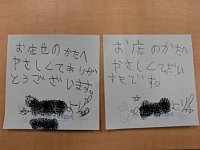 お店のかたへ
やさしくておりが
とうございます。
お店のかたへ
やさしくてだい
すきです。
より